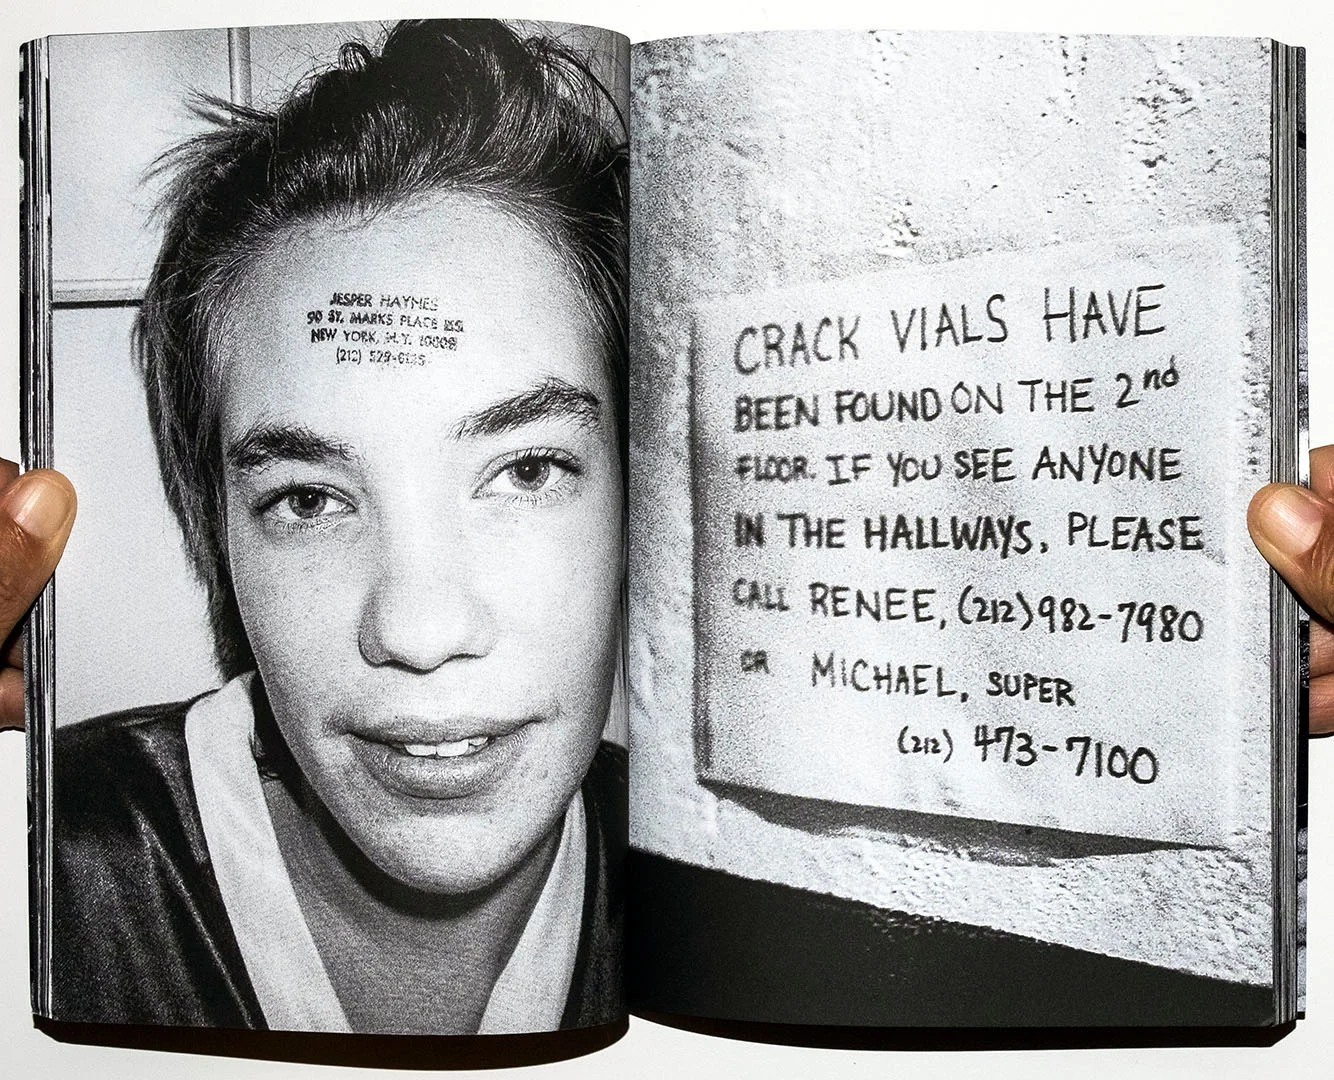 JESPER HAYNES
90 ST. MARKS PLACE
NEW YORK, N.Y. 10009
(212)
CRACK VIALS HAVE
BEEN FOUND ON THE 2nd
FLOOR. IF YOU SEE ANYONE
IN THE HALLWAYS, PLEASE
CALL RENEE, (212) 982-7980
OR MICHAEL, SUPER
(212) 473-7100